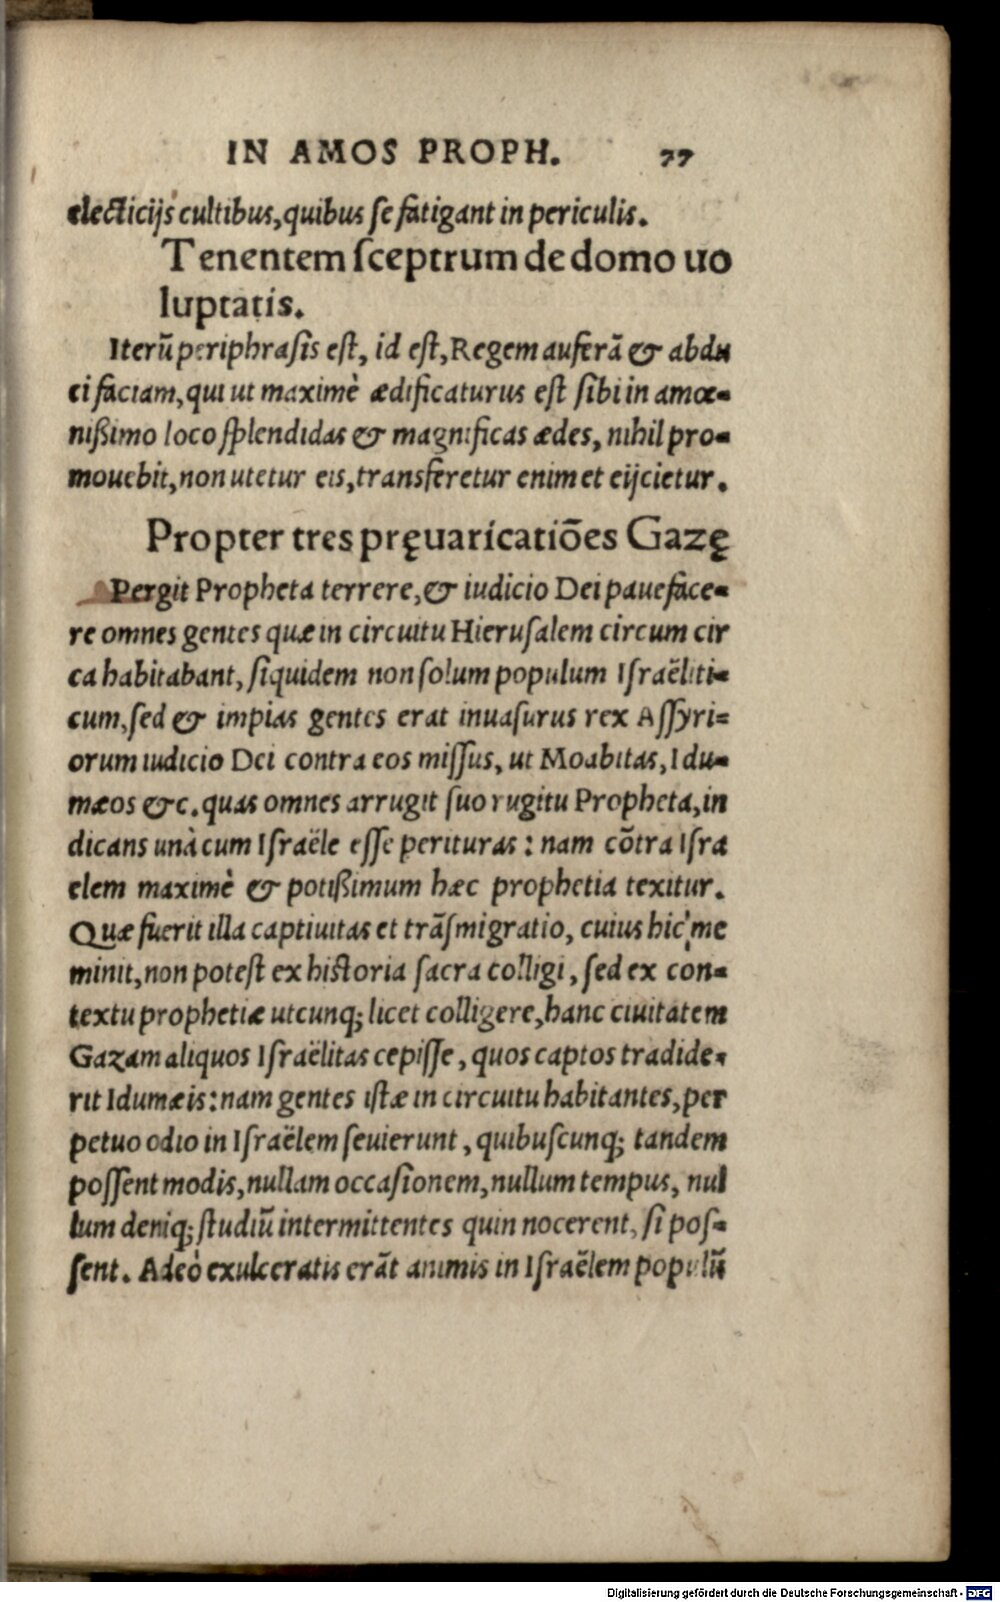 IN AMOS PROPH. 77
electicijs cultibus, quibus se fatigant in periculis.
Tenentem sceptrum de domo uo
luptatis.
Iterũ periphrasis est, id est, Regem auferã & abdu
ci faciam, qui ut maximè ædificaturus est sibi in amœ-
nißimo loco splendidas & magnificas ædes, nihil pro-
mouebit, non utetur eis, transferetur enim et eijcietur.
Propter tres pręuaricatiões Gazę
Pergit Propheta terrere, & iudicio Dei paueface-
re omnes gentes quæ in circuitu Hierusalem circum cir
ca habitabant, siquidem non solum populum Israëliti-
cum, sed & impias gentes erat inuasurus rex Assyri-
orum iudicio Dei contra eos missus, ut Moabitas, Idu-
mæos &c. quas omnes arrugit suo rugitu Propheta, in
dicans unà cum Israële esse perituras: nam cõtra Isra
elem maximè & potißimum hæc prophetia texitur.
Quæ fuerit illa captiuitas et trãsmigratio, cuius hic me
minit, non potest ex historia sacra colligi, sed ex con-
textu prophetiæ utcunq; licet colligere, hanc ciuitatem
Gazam aliquos Israëlitas cepisse, quos captos tradide-
rit Idumæis: nam gentes istæ in circuitu habitantes, per
petuo odio in Israëlem seuierunt, quibuscunq; tandem
possent modis, nullam occasionem, nullum tempus, nul
lum deniq; studiũ intermittentes quin nocerent, si pos-
sent. Adeò exulceratis erãt animis in Israëlem populũ
Digitalisierung gefördert durch die Deutsche Forschungsgemeinschaft - DFG